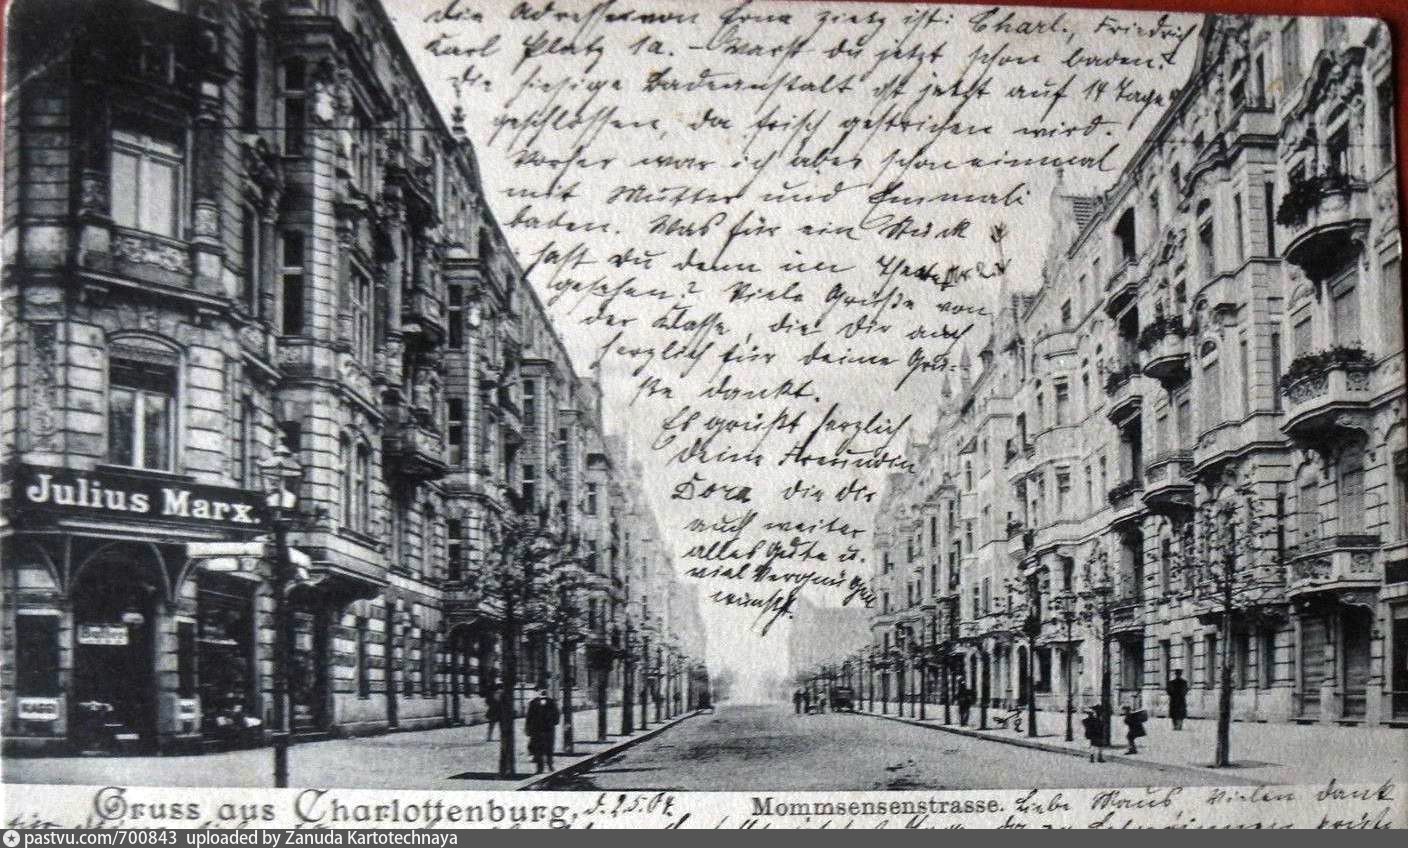 die Adresse von Erna Zietz ist: Charl., Friedrich
Karl Platz 1a. – Warst du jetzt schon baden?
die hiesige Badeanstalt ist jetzt auf 14 Tage
geschlossen, da frisch gestrichen wird.
Vorher war ich aber schon einmal
mit Mutter und Emmali
baden. Was für ein Stück
hast du denn im Theater
gesehen? Viele Grüße von
der Klasse, die Dir auch
herzlich für deine Grü-
ße dankt.
Es grüßt herzlich
deine Freundin
Dora, die dir
auch weiter
alles Gute u.
viel Vergnügen
wünscht.
Julius Marx.
Gruss aus Charlottenburg, d. 2.5.04.
Mommsensenstrasse.
Liebe Maus, Vielen Dank
pastvu.com/700843 uploaded by Zanuda Kartotechnaya